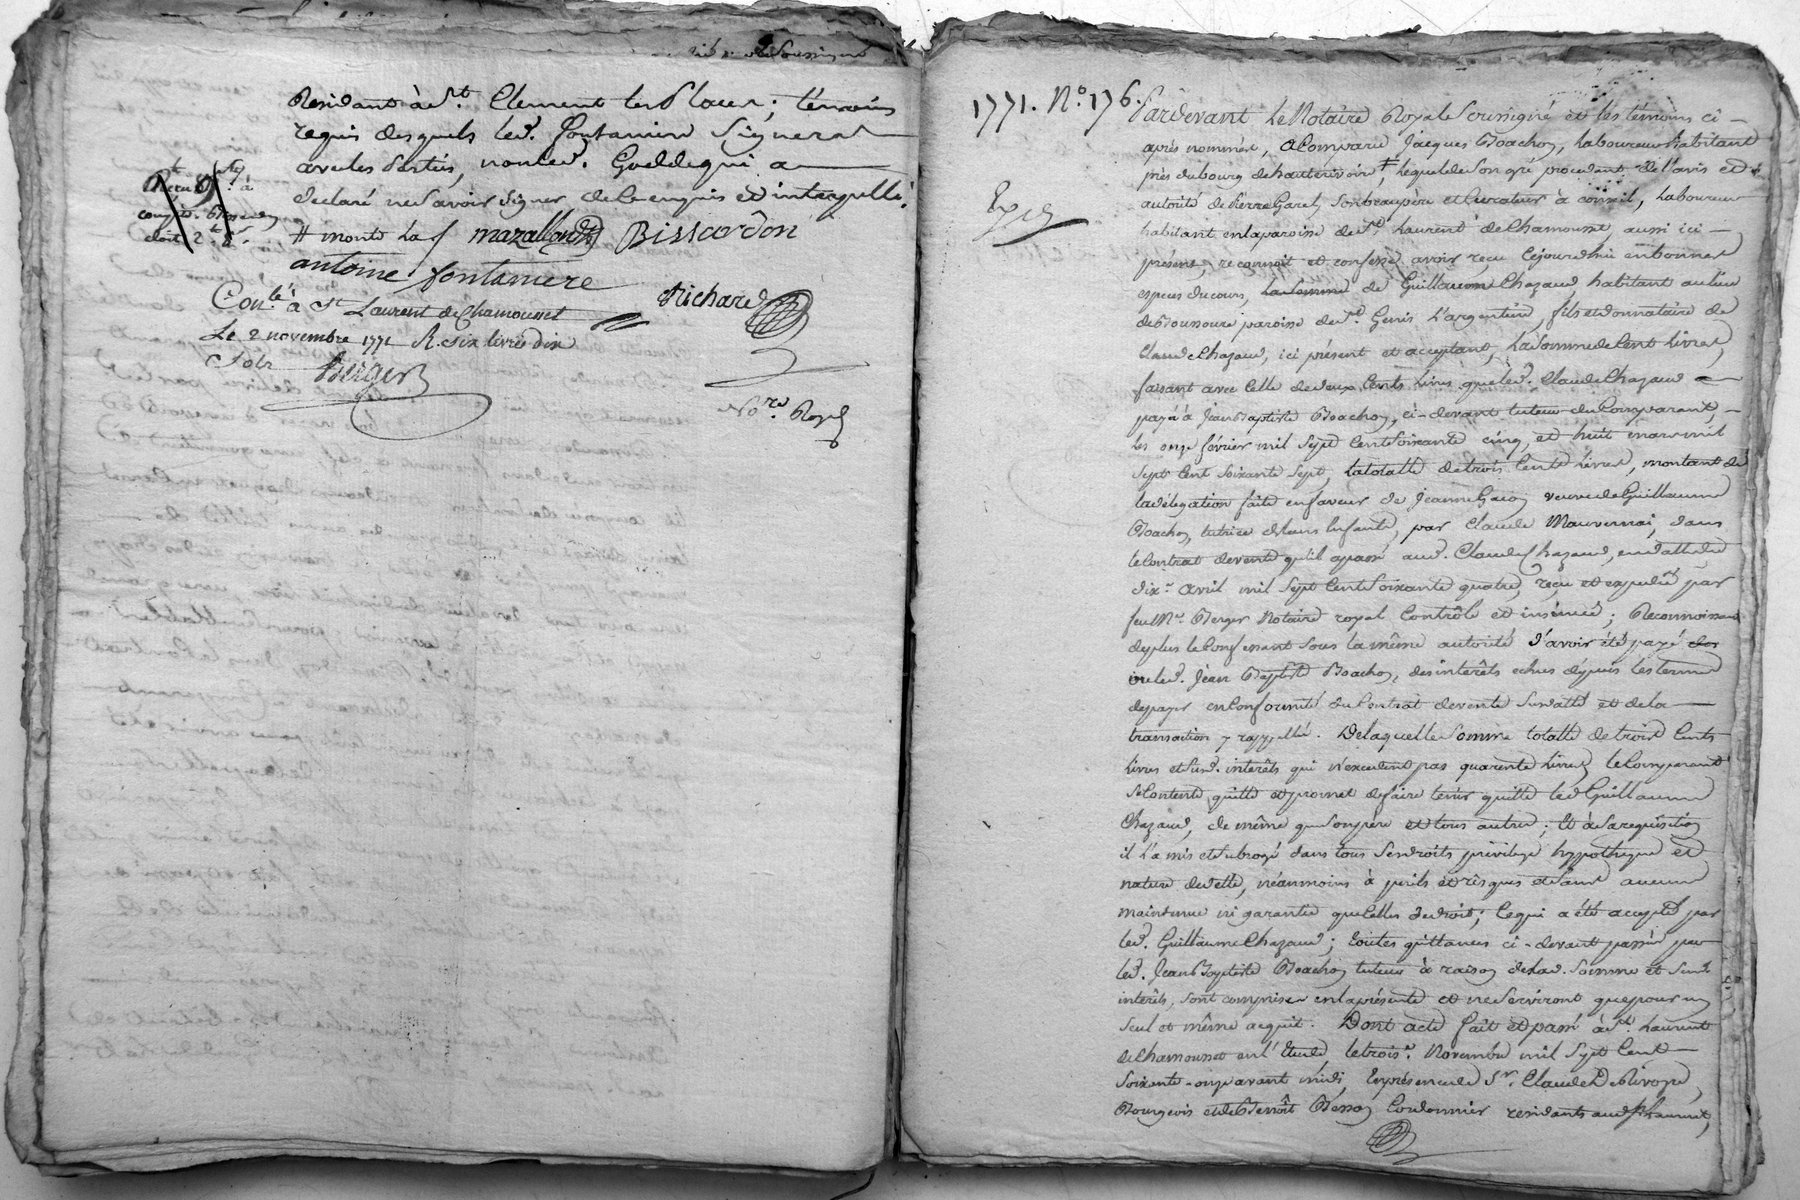 Résidant à St. Clement les Places; témoins
requis desquels led. fontaniere Signera
avec les parties, non led. qui a
declaré ne savoir signer de ce enquis et interpellé.
Reçu
# monté La f mazallon Bissardon
antoine fontaniere
Richard
Conlé. à St Laurent de Chamousset
Le 2 novembre 1771 R. six livres dix
sols Berger
No.re Royal
1771. No. 176. Pardevant Le Notaire Royal Soussigné et les témoins ci-
après nommés, a Comparu Jacques Boachon, Laboureur habitant
près du bourg de hauterivoire, Lequel de Son gré procedant de l'avis et
Exp.ée
autorité de Pierre Garel, Son beaupère et Curateur à conseil, Laboureur
habitant en la paroisse de St. Laurent de Chamousset, aussi ici-
présent, reconnoit et confesse avoir reçu Cejourd'hui en bonnes
especes du cours, La Somme de Guillaume Chazaud, habitant au lieu
de paroisse de St. Genis L'argentiere, fils et donnataire de
Claude Chazaud, ici présent et acceptant, La Somme de Cent Livres,
faisant avec Celle de deux Cents Livres que led. Claude Chazaud
paya à Jean Baptiste Boachon, ci-devant tuteur du Comparant,
les onze février mil Sept Cent Soixante cinq, et huit mars mil
Sept Cent Soixante Sept, La totalle de trois Cents Livres, montant de
La délégation faite en faveur de Jeanne veuve de Guillaume
Boachon, tutrice de leurs Enfants, par Claude Mauvernai, dans
le Contrat de vente qu'il a passé aud. Claude Chazaud, en datte du
dix.e avril mil Sept Cent Soixante quatre, reçu et expedié par
feu Me. Berger Notaire royal Contrôlé et insinué; Reconnoissant
de plus le Confessant Sous la même autorité d'avoir été payé
ou led. Jean Baptiste Boachon, des intérêts echus depuis les termes
de payer en Conformité du Contrat de vente Susdatté et de la
transaction y rappellée. De laquelle Somme totalle de trois Cents
Livres et Susd. intérêts qui n'excedent pas quarente Livres, le Comparant
Se Contente, quitte et promet de faire tenir quitte led. Guillaume
Chazaud, de même que Son père et tous autres; Et à Sa requisition
il L'a mis et Subrogé dans tous Ses droits privilege hypotheque et
nature d'icelle, néanmoins à perils et risques et Sans aucune
maintenue ni garantie que Celles de droit; Ce qui a été accepté par
led. Guillaume Chazaud; toutes quittances ci-devant passées par
led. Jean Baptiste Boachon tuteur à raison de lad. Somme et Susd.
intérêts, Sont comprises en la présente et ne Serviront que pour un
Seul et même acquit. Dont acte fait et passé à St. Laurent
de Chamousset en l'Etude, le trois.e Novembre mil Sept Cent
Soixante-onze avant midi, En présence de Sr. Claude De Rivoyre,
Bourgeois et de Benoit Besson Cordonnier residants aud. St Laurent,